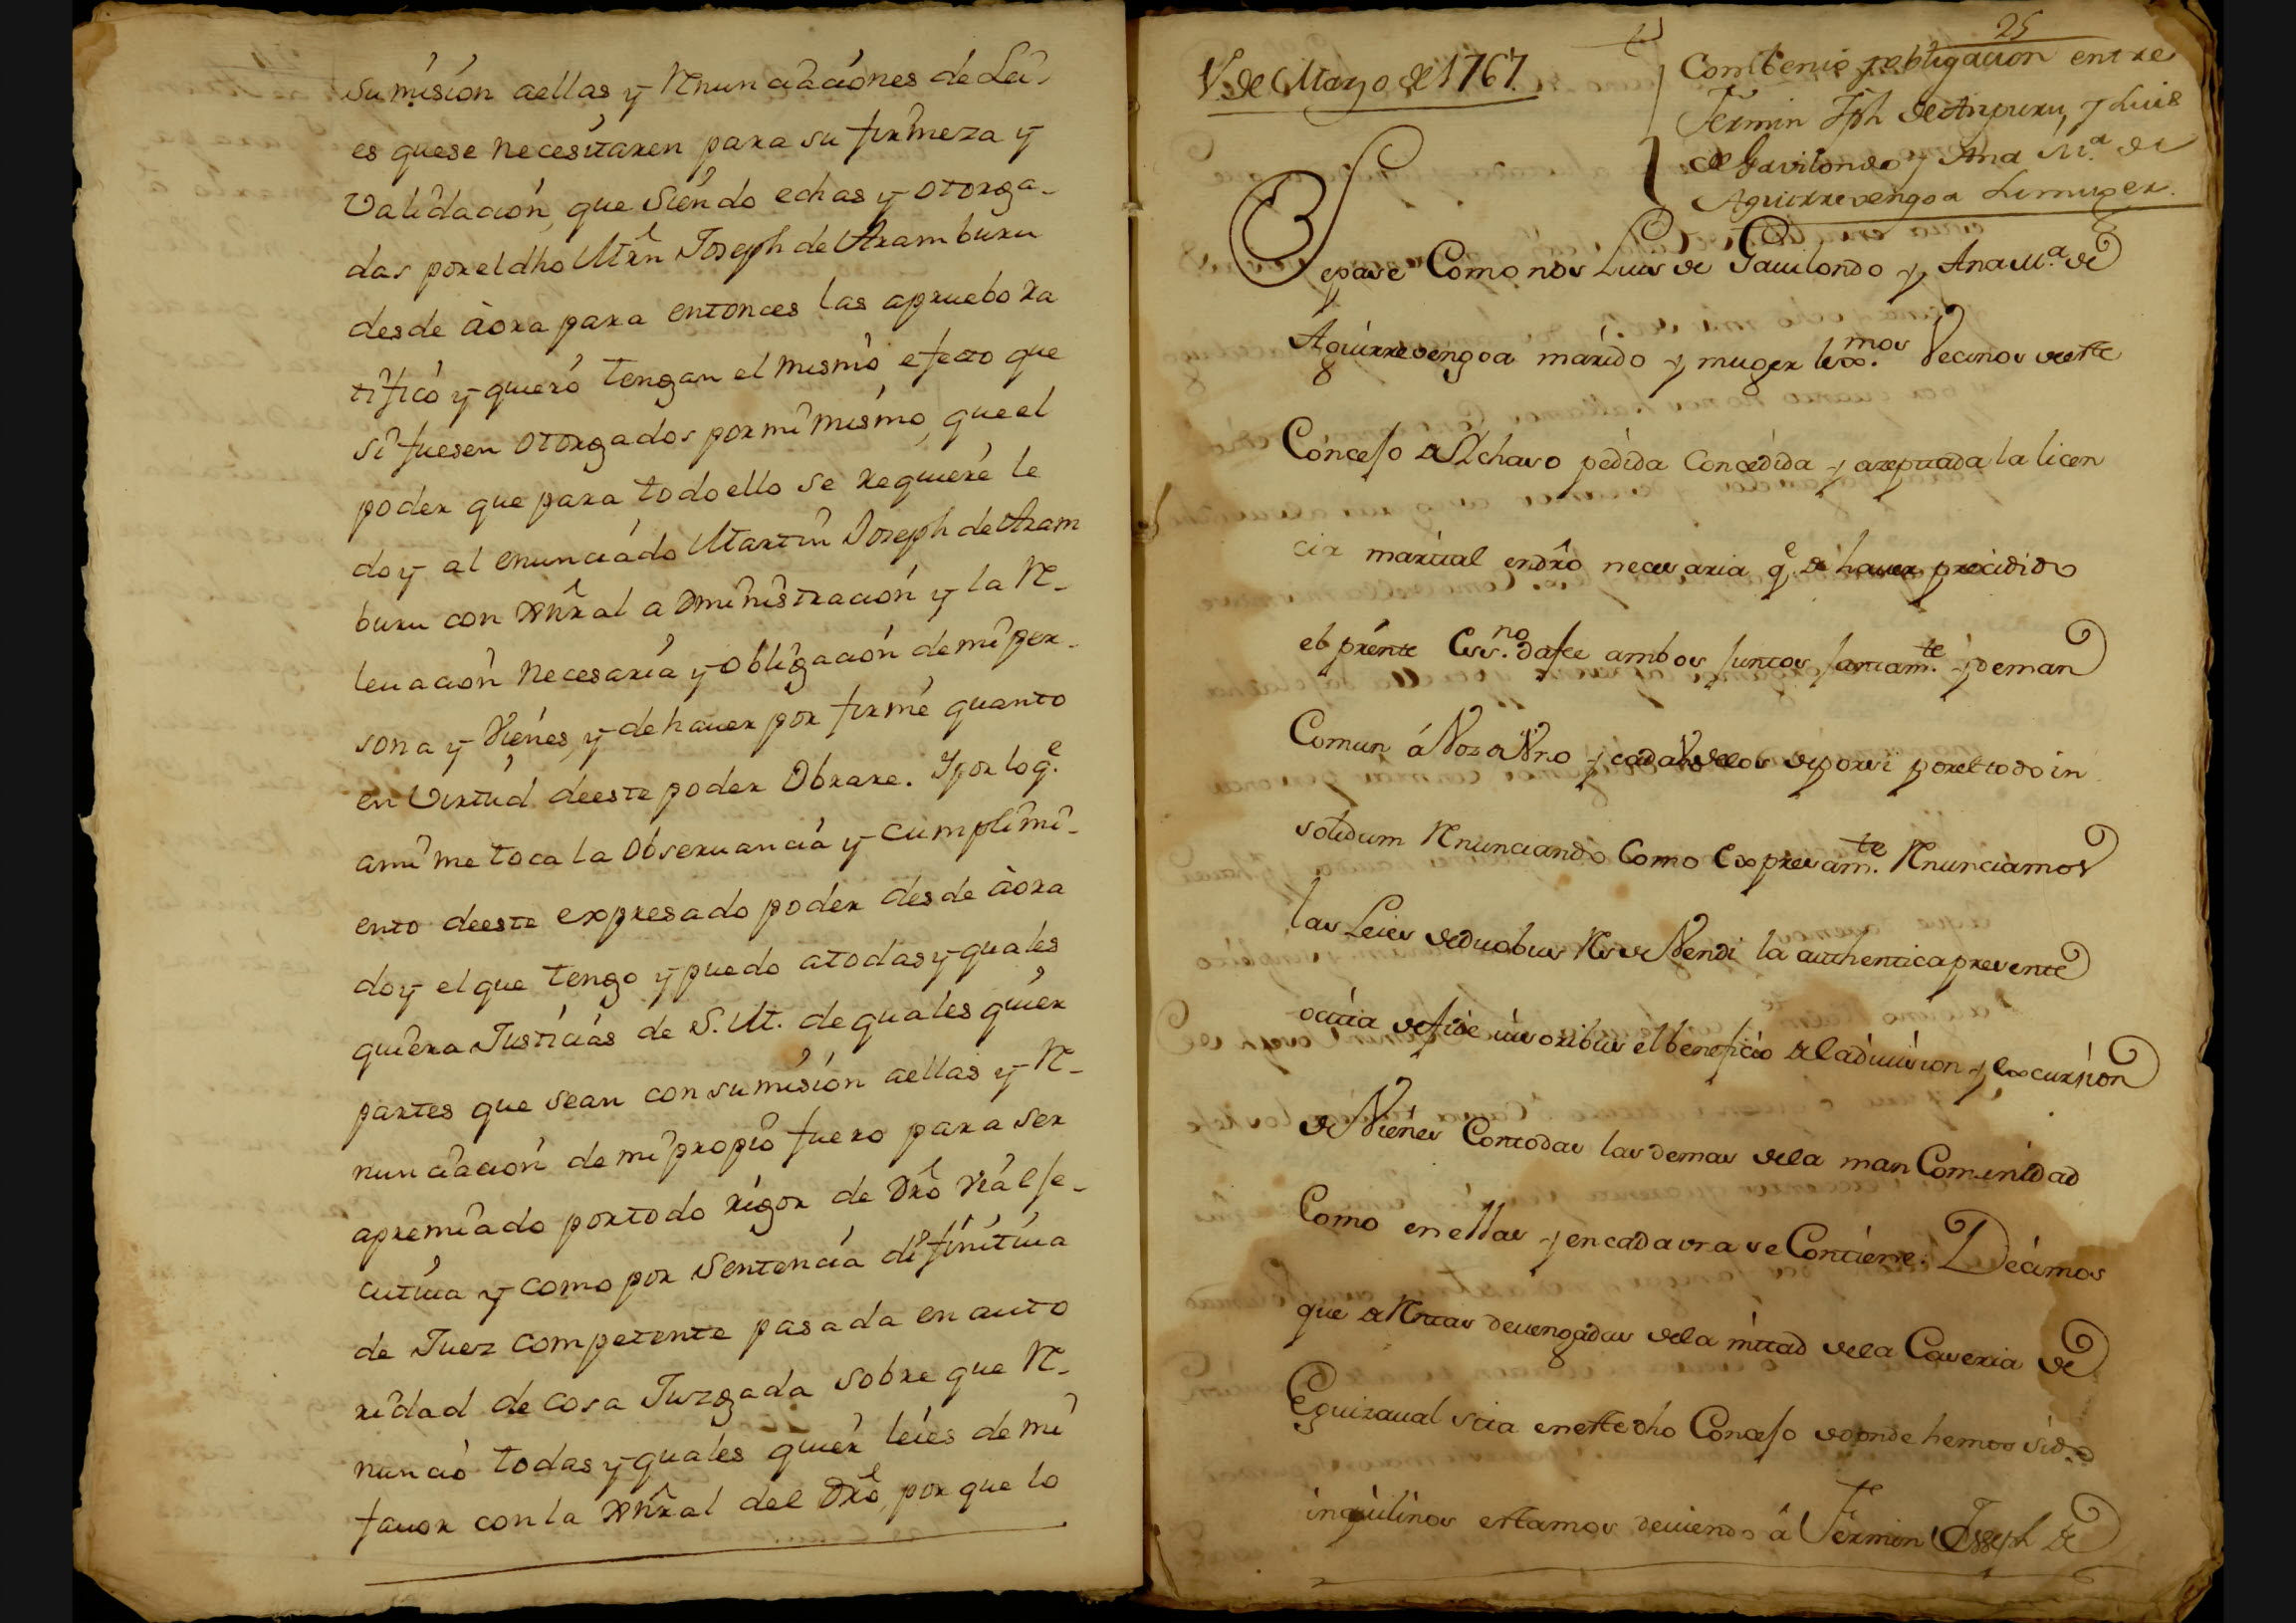 sumision aellas y Renunciaciones de Lei-
es quese necesitaren para su firmeza y
validacion, que siendo echas y otorga-
das porel dho Mrñ Joseph de Aramburu
desde àora para entonces las apruebo ra
tifico y quiero tengan el mismo efecto que
si fuesen otorgados por mi mismo, que el
poder que para todo ello se requiere le
doy al enunciado Martin Joseph de Aram
buru con gñral administracion y la Re-
leuacion necesaria y obligacion de mi per-
sona y vienes, y de hauer por firme quanto
en virtud deeste poder obrare. Y por loq.e
ami me toca la observancia y cumplimi-
ento deeste expresado poder desde àora
doy el que tengo y puedo atodas y quales
quiera Justicias de S. M. de quales quier
partes que sean con sumision aellas y Re-
nunciacion de mi propio fuero para ser
apremiado portodo rigor de Dro Real se-
cutiua y como por sentencia difinitiua
de Juez competente pasada en auto
ridad de cosa Juzgada sobre que Re-
nuncio todas y quales quier leies de mi
fauor con la gñral del Dro, por que lo
25
1º. de Marzo de 1767.
Combenio y obligacion entre
Fermin Jph de Anpuru, y Luis
de Gavilondo y Ana M.a de
Aguirrevengoa su muger.
Sepase Como nos Luis de Gauilondo y Ana M.a de
Aguirrevengoa marido y muger lex.mos Vecinos deste
Concejo de Elchavo pedida Concedida y azeptada la licen
cia marital endro necesaria q.e de hauer precidido
el prénte Ess.no dafee ambos juntos juntam.te y deman
Comun á Voz de Vno y cada Vno delos deporsi porel todo in
solidum Renunciando Como Expresam.te Renunciamos
las Leies deduobus Res de Vendi la authentica presente
ocitta defide iusoribus el beneficio de la diuision y Excursion
de Vienes Contodas las demas dela man Comunidad
Como en ellas y en cada vna se Contiene. Decimos
que de Rentas deuengadas dela mitad dela Caseria de
Eguizaual sita eneste dho Concejo dedonde hemos sido
inquilinos estamos deuiendo â Fermin Joseph de